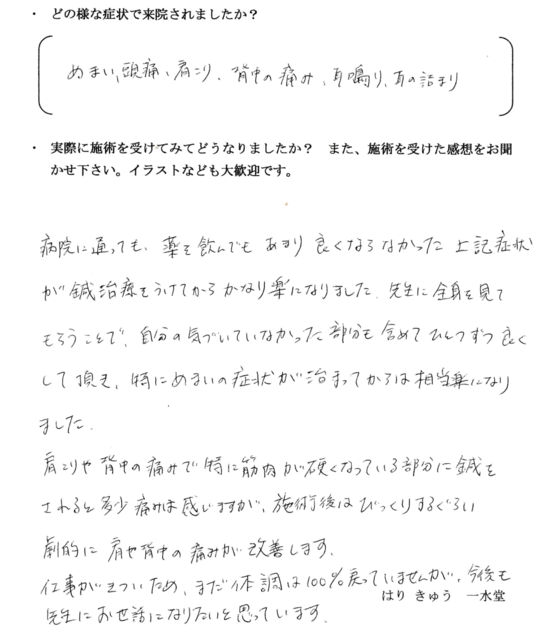 ・ どの様な症状で来院されましたか？
めまい、頭痛、肩こり、背中の痛み、耳鳴り、耳の詰まり
・ 実際に施術を受けてみてどうなりましたか？ また、施術を受けた感想をお聞
かせ下さい。イラストなども大歓迎です。
病院に通っても、薬を飲んでも あまり 良くならなかった 上記症状
が 鍼治療をうけてから かなり楽になりました. 先生に全身を見て
もらうことで、自分の気づいていなかった部分も含めて ひとつずつ良く
して頂き、特にめまいの症状が治まってからは相当楽になり
ました.
肩こりや 背中の痛みで 特に筋肉が硬くなっている部分に鍼を
されると多少痛みは感じますが、施術後は びっくりするぐらい
劇的に 肩や背中の痛みが改善します.
仕事がきついため、まだ体調は100%戻っていませんが、今後も
先生にお世話になりたいと思っています.
はり きゅう 一水堂